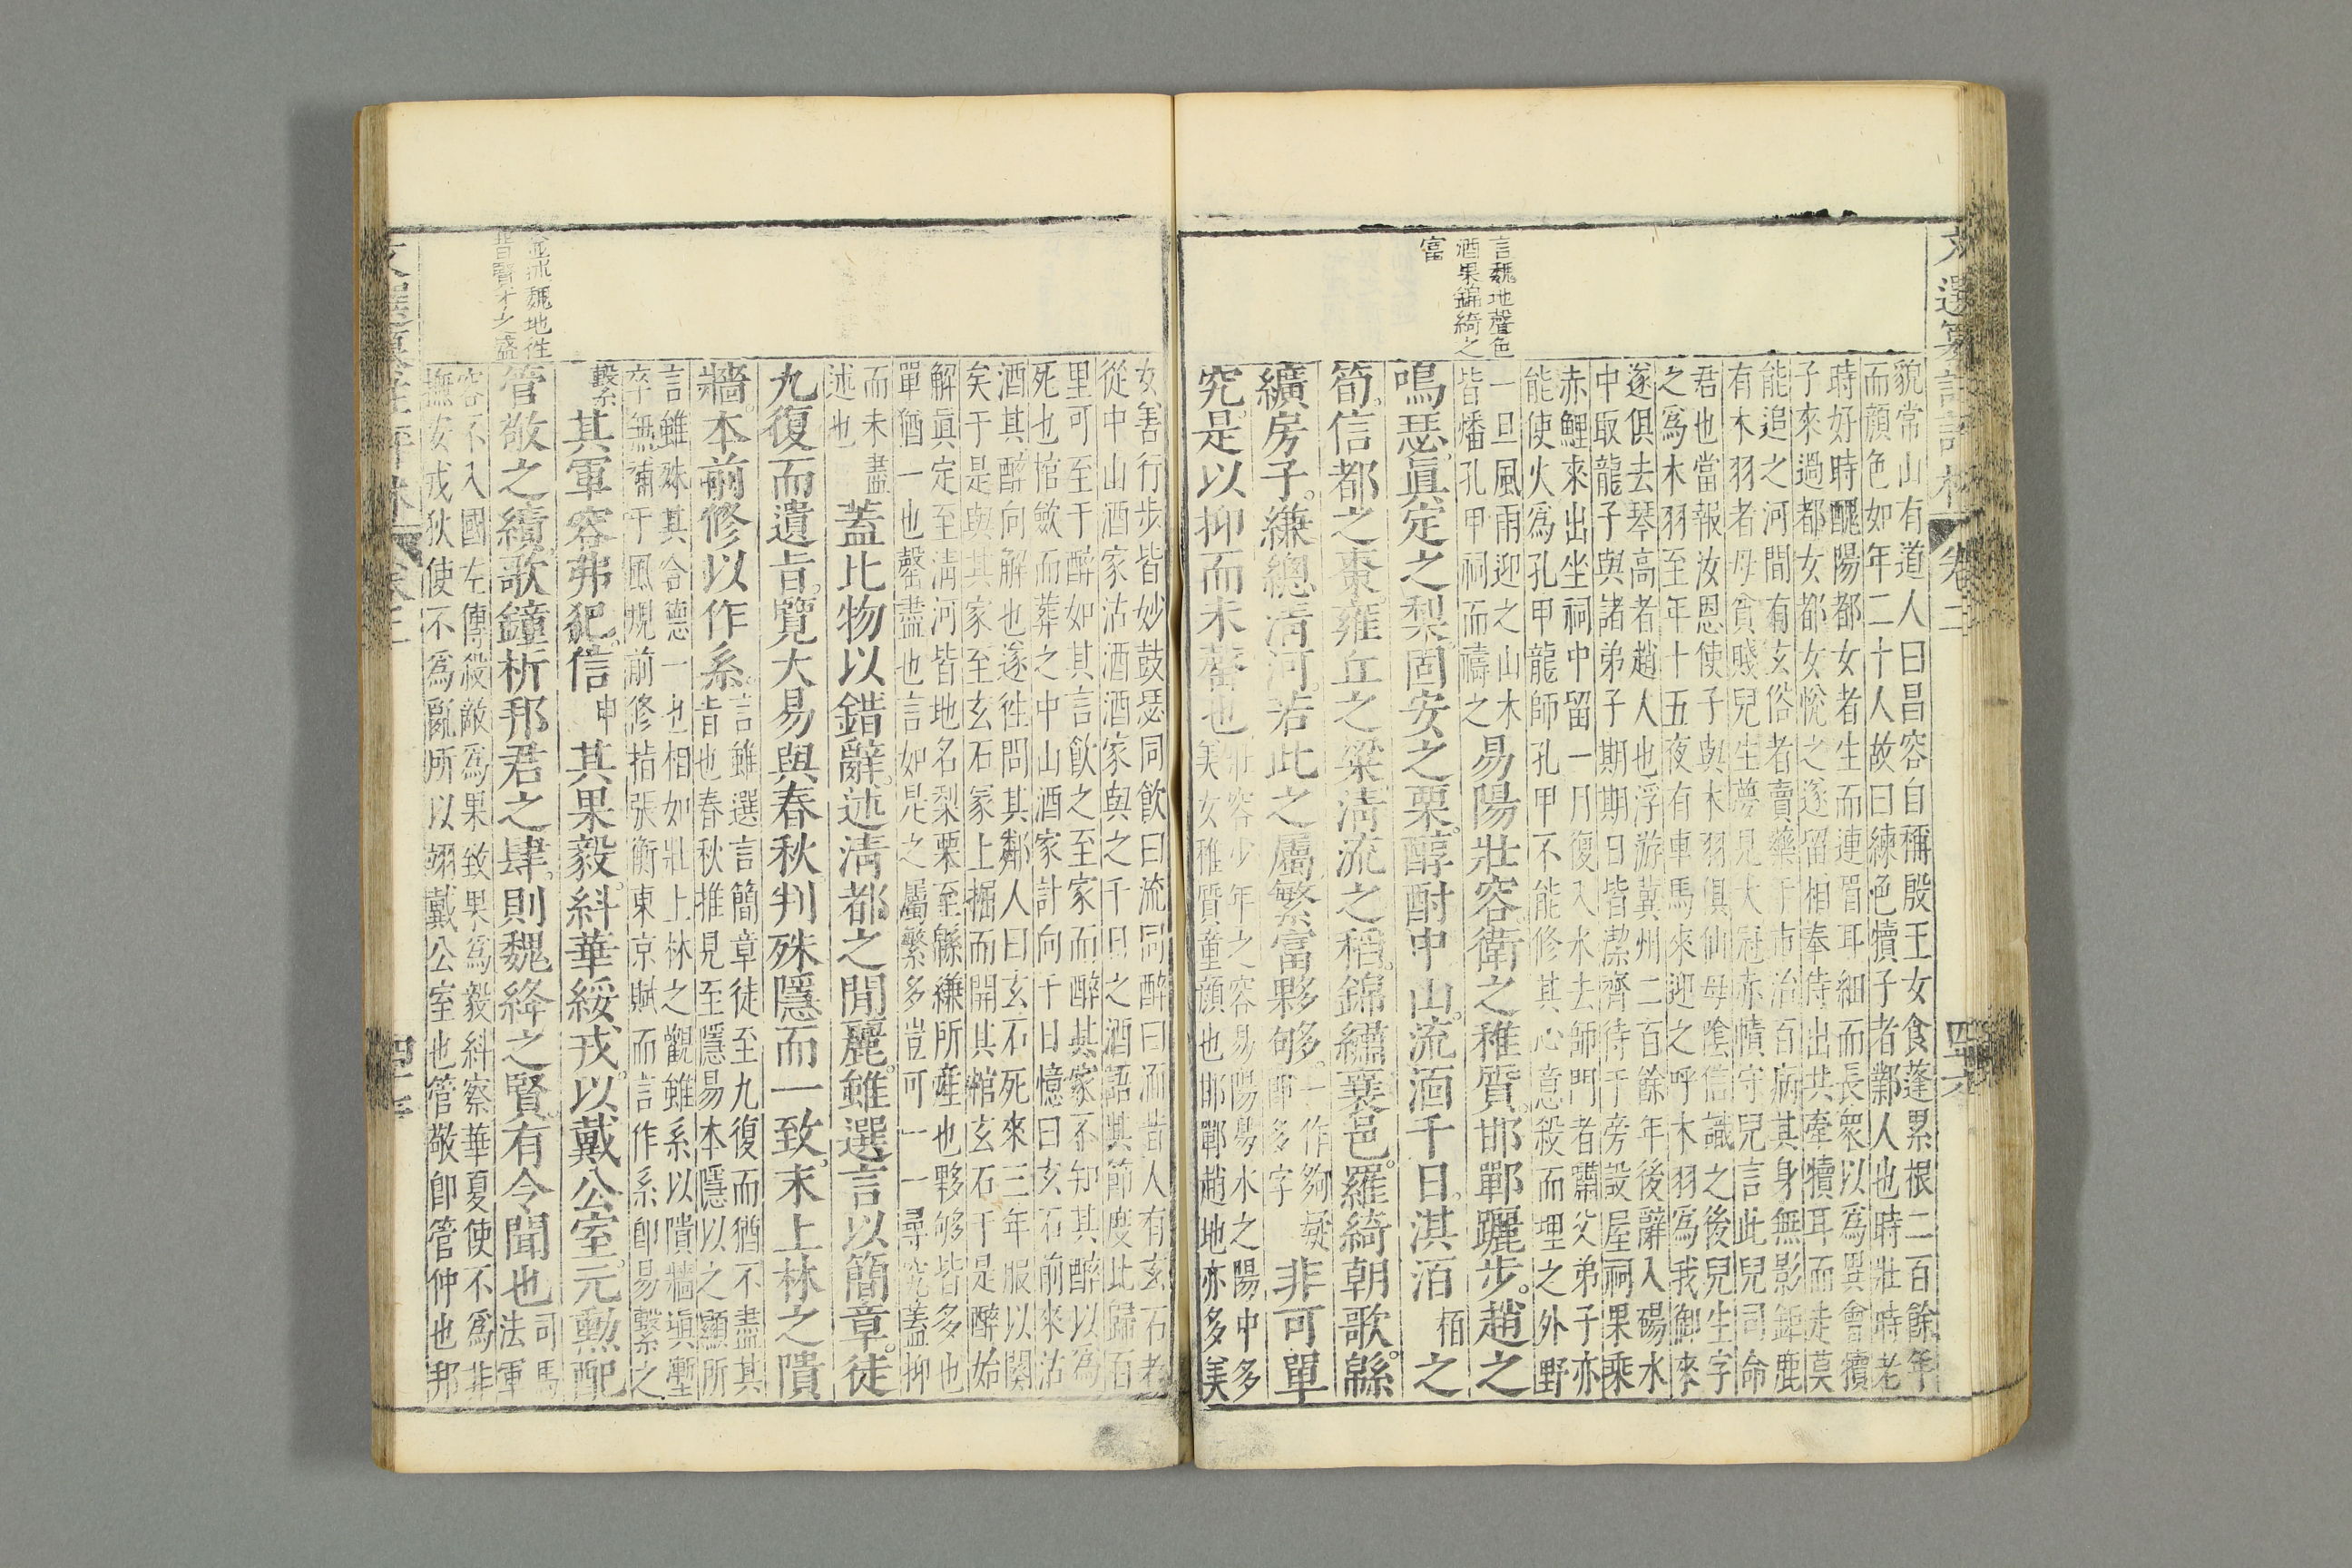 文選纂註評林
卷三
四十六
言魏地聲色
酒果錦綺之
富
貌常山有道人曰昌容自稱殷王女食蓬累根二百餘年
而顏色如年二十人故曰練色犢子者鄴人也時壯時老
時好時醜陽都女者生而連眉耳細而長衆以爲異會犢
子來過都女都女悅之遂留相奉侍出共牽犢耳而走莫
能追之河間有玄俗者賣藥于市治百病其身無影鉅鹿
有木羽者母貧賤兒生夢見大冠赤幘守兒言此兒司命
君也當報汝恩使子與木羽俱仙母陰信識之後兒生字
之爲木羽至年十五夜有車馬來迎之呼木羽爲我御來
遂俱去琴高者趙人也浮游冀州二百餘年後辭入碭水
中取龍子與諸弟子期期日皆潔齊待于旁設屋祠果乘
赤鯉來出坐祠中留一月復入水去師門者嘯父弟子亦
能使火爲孔甲龍師孔甲不能修其心意殺而埋之外野
一旦風雨迎之山木
皆燔孔甲祠而禱之
易陽壯容衛之稚質邯鄲躧步趙之
鳴瑟眞定之梨固安之栗醇酎中山流湎千日淇洹桓之
筍信都之棗雍丘之粱淸流之稻錦繡襄邑羅綺朝歌緜
纊房子縑總淸河若此之屬繁富夥够多一作夠疑
卽多字
非可單
究是以抑而未罄也
壯容少年之容易陽易水之陽中多
美女稚質童顏也邯鄲趙地亦多美
女善行步皆妙鼓瑟同飮曰流同醉曰湎昔人有玄石者
從中山酒家沽酒酒家與之千日之酒語其節度比歸百
里可至于醉如其言飮之至家而醉其家不知其醉以爲
死也棺斂而葬之中山酒家計向千日憶曰玄石前來沽
酒其醉向解也遂往問其鄰人曰玄石死來三年服以闋
矣于是與其家至玄石冢上掘而開其棺玄石于是醉始
解眞定至淸河皆地名梨栗至緜縑所產也夥够皆多也
單猶一也罄盡也言如是之屬繁多豈可一一尋究蓋抑
而未盡
述也
蓋比物以錯辭述淸都之閒麗雖選言以簡章徒
九復而遺旨覽大易與春秋判殊隱而一致末上林之隤
牆本前修以作系
言雖選言簡章徒至九復而猶不盡其
旨也春秋推見至隱易本隱以之顯所
言雖殊其合德一也相如壯上林之觀雖系以隤牆塡塹
卒無補于風規前修指張衡東京賦而言作系卽易繫之
繫
其軍容弗犯信申其果毅糾華綏戎以戴公室元勳配
管敬之績歌鐘析邦君之肆則魏絳之賢有令聞也
司馬
法軍
容不入國左傳殺敵爲果致果爲毅糾察華夏使不爲非
撫安戎狄使不爲亂所以翊戴公室也管敬卽管仲也邦
並述魏地往
昔賢才之盛
文選纂註評林
卷三
四十七